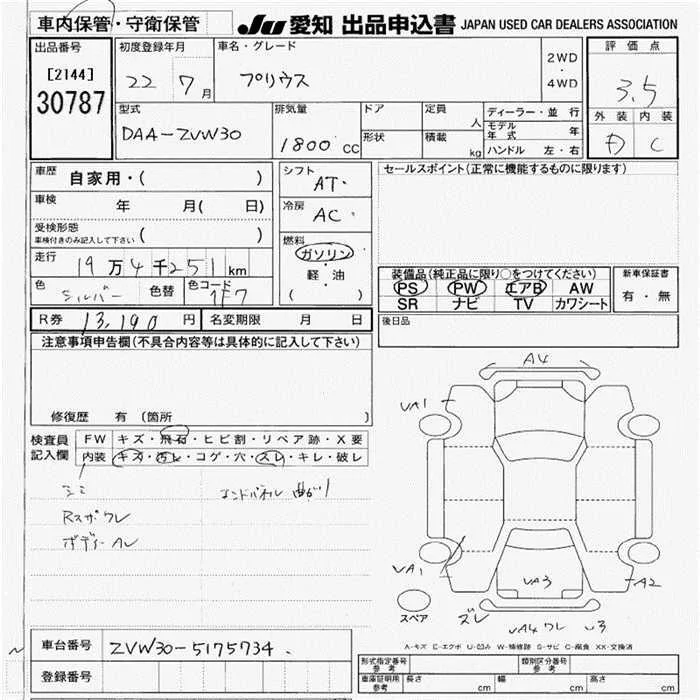 車内保管・守衛保管
JU 愛知 出品申込書 JAPAN USED CAR DEALERS ASSOCIATION
出品番号
[2144]
30787
初度登録年月
22 7 月
車名・グレード
プリウス
2WD
・
4WD
評価点
3.5
外装 内装
D C
型式
DAA-ZVW30
排気量
1800 cc
ドア
形状
定員
人
積載
kg
ディーラー・並行
モデル年式 年
ハンドル 左・右
車歴
自家用・( )
車検
年 月( 日)
受検形態
車検付きのみ記入して下さい ( )
走行
19万4千251km
色
シルバー
色替
色コード
1F7
シフト
AT・
冷房
AC・
燃料
ガソリン
・
軽・油
( )
セールスポイント(正常に機能するものに限ります)
装備品(純正品に限り○をつけてください)
PS PW エアB AW
SR ナビ TV カワシート
新車保証書
有・無
後日品
R券 13,190 円
名変期限 月 日
注意事項申告欄(不具合内容等は具体的に記入して下さい)
修復歴 有(箇所 )
検査員
記入欄
FW キズ・飛石・ヒビ割・リペア跡・X要
内装 キズ・汚レ・コゲ・穴・スレ・キレ・破レ
シミ
エンドパネル曲がり
Rスポワレ
ボディーAレ
A4
VA1
VA1
VA3
A2
スペア
ズレ
VA4 ワレ U3
A-キズ E-エクボ U-凹み W-補修跡 S-サビ C-腐食 XX-交換済
車台番号
ZVW30-5175734
登録番号
形式指定番号
参考
類別区分番号
参考
車庫証明用
参考
長さ cm
幅 cm
高さ cm